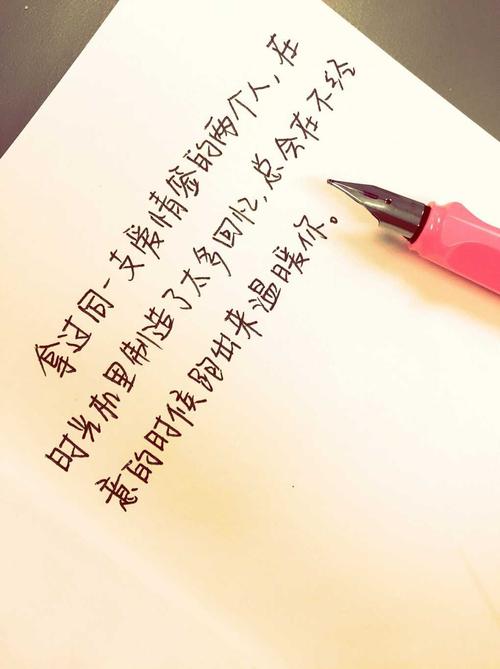 拿过同一支爱情签的两个人，在
时光布里制造了太多回忆，总会在不经
意的时候跑出来温暖你。